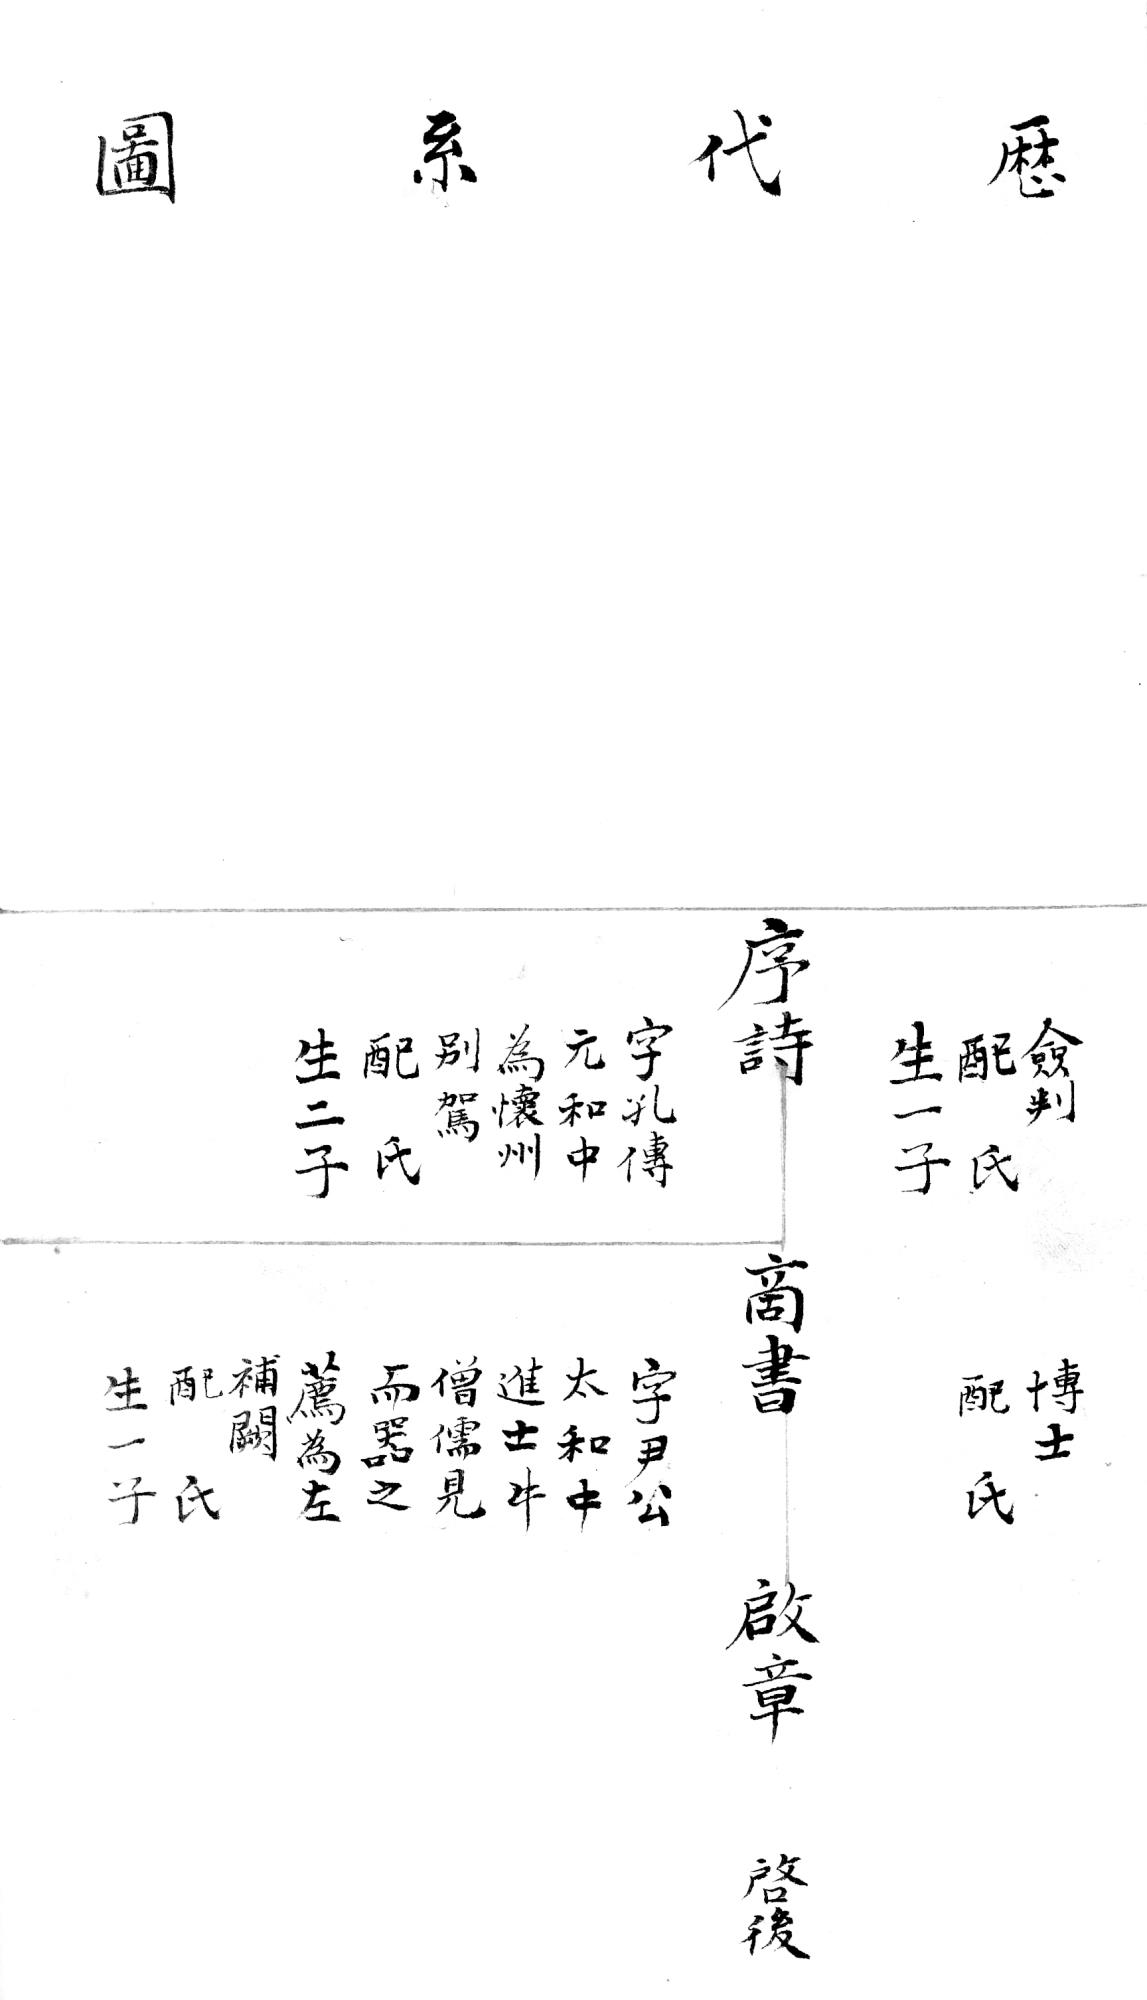 歷代系圖
僉判
配氏
生一子
序詩
字孔傳
元和中
為懷州
別駕
配氏
生二子
博士
配氏
商書
字尹公
太和中
進士牛
僧儒見
而器之
薦為左
補闕
配氏
生一子
啟章
啓後